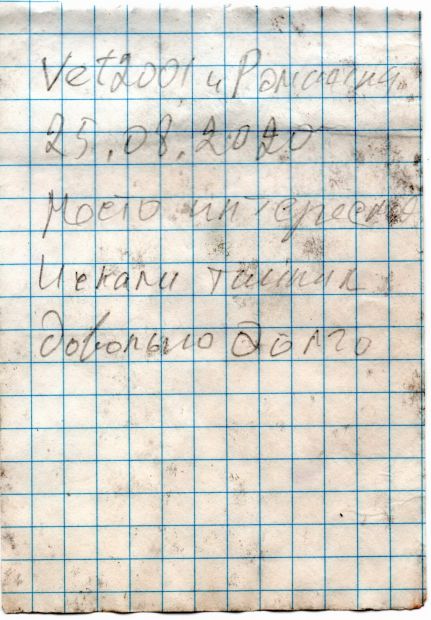 Vet2001 и Ромашка
25.08.2020
Место интересное
Искали тайник
довольно долго